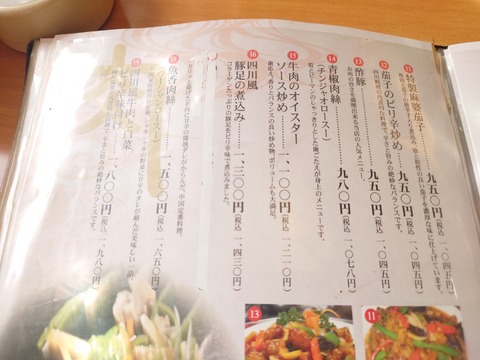 ⑪ 特製麻婆茄子……九五〇円(税込 一、〇四五円)
⑫ 茄子のピリ辛炒め……九五〇円(税込 一、〇四五円)
⑬ 酢豚……九五〇円(税込 一、〇四五円)
お肉の旨さを満喫出来る当店の人気メニュー。
⑭ 青椒肉絲
(チンジャオロースー)……九八〇円(税込 一、〇七八円)
筍とピーマンのしゃきっとした歯ごたえが身上のメニューです。
⑮ 牛肉のオイスター
ソース炒め……一、一〇〇円(税込 一、二一〇円)
歯応え、香りとバランスの良い炒め物。ボリュームも大満足。
⑯ 四川風
豚足の煮込み……一、三〇〇円(税込 一、四三〇円)
コラーゲンたっぷりの豚足をピリ辛味で煮込みました。
⑰ 魚香肉絲
(ユーシャンロースー)……一、五〇〇円(税込 一、六五〇円)
⑱ 四川風牛肉と白菜
ピリ辛味付け……一、八〇〇円(税込 一、九八〇円)
⑬
⑪